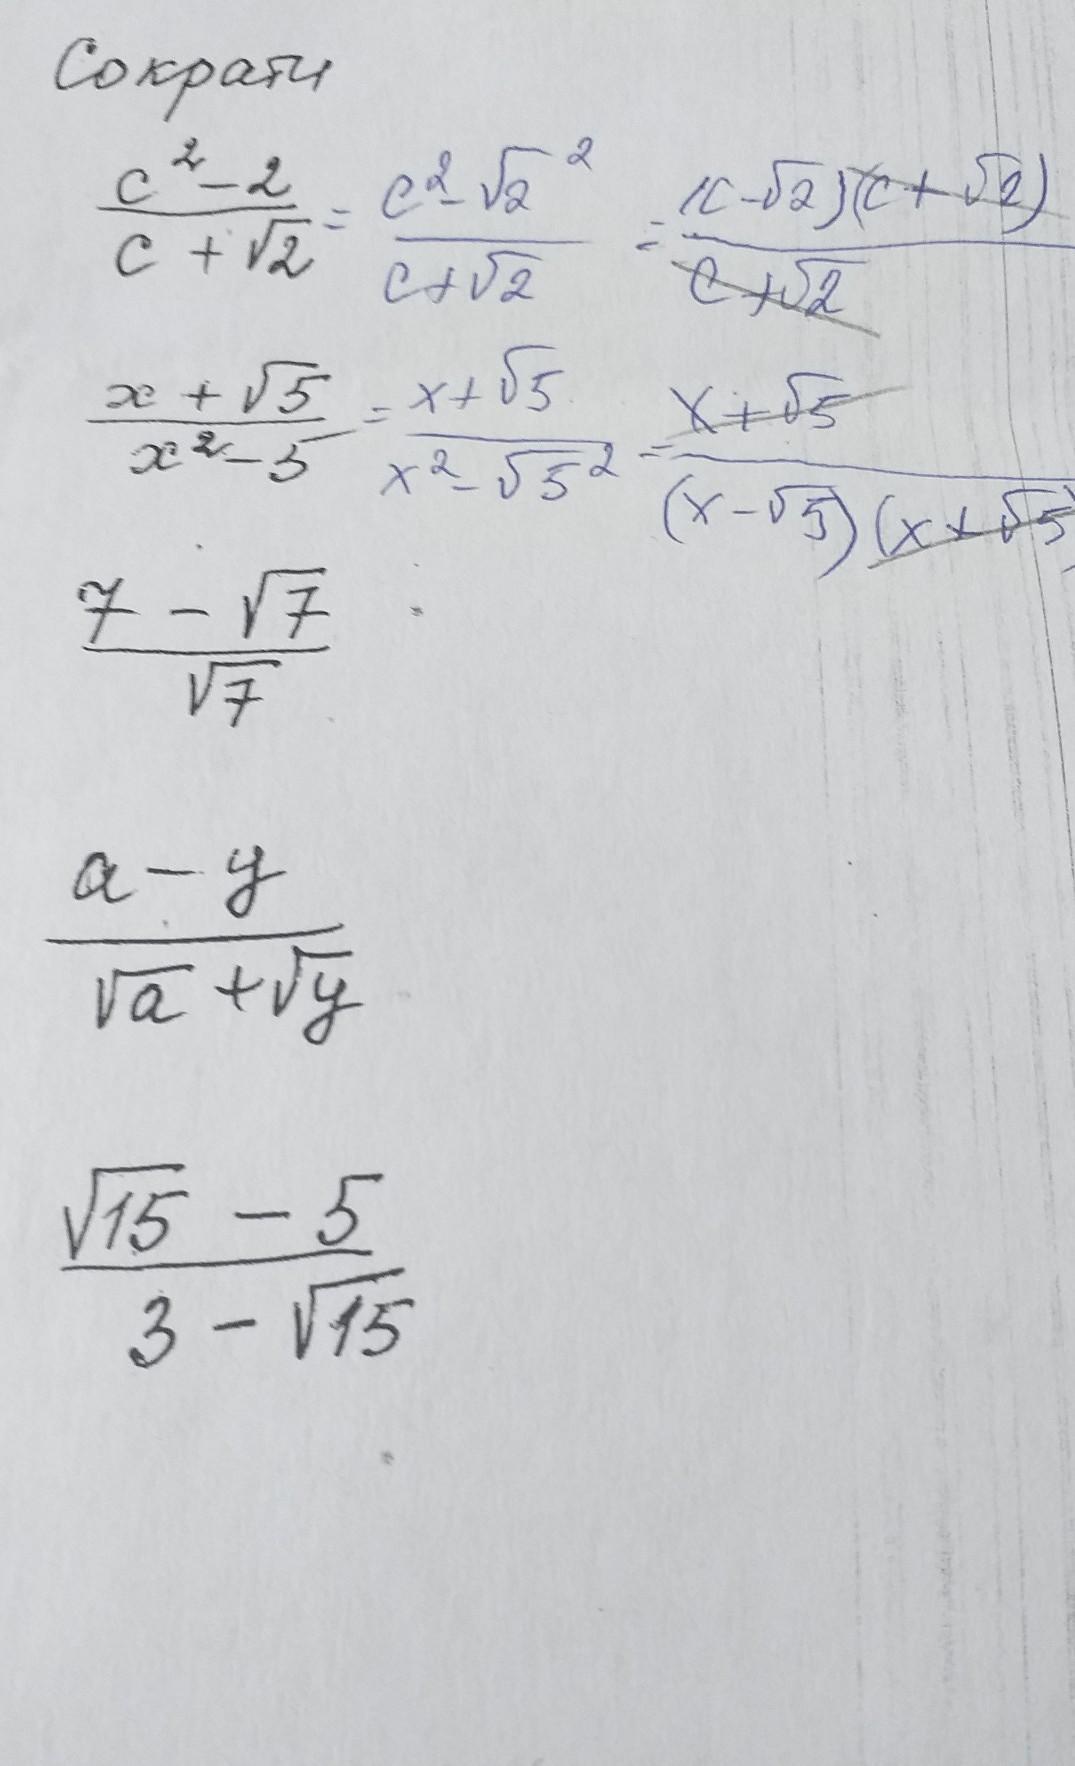 Сократи
c² - 2 / c + √2 = c² - √2² / c + √2 = (c - √2)(c + √2) / c + √2
x + √5 / x² - 5 = x + √5 / x² - √5² = x + √5 / (x - √5)(x + √5)
7 - √7 / √7
a - y / √a + √y
√15 - 5 / 3 - √15